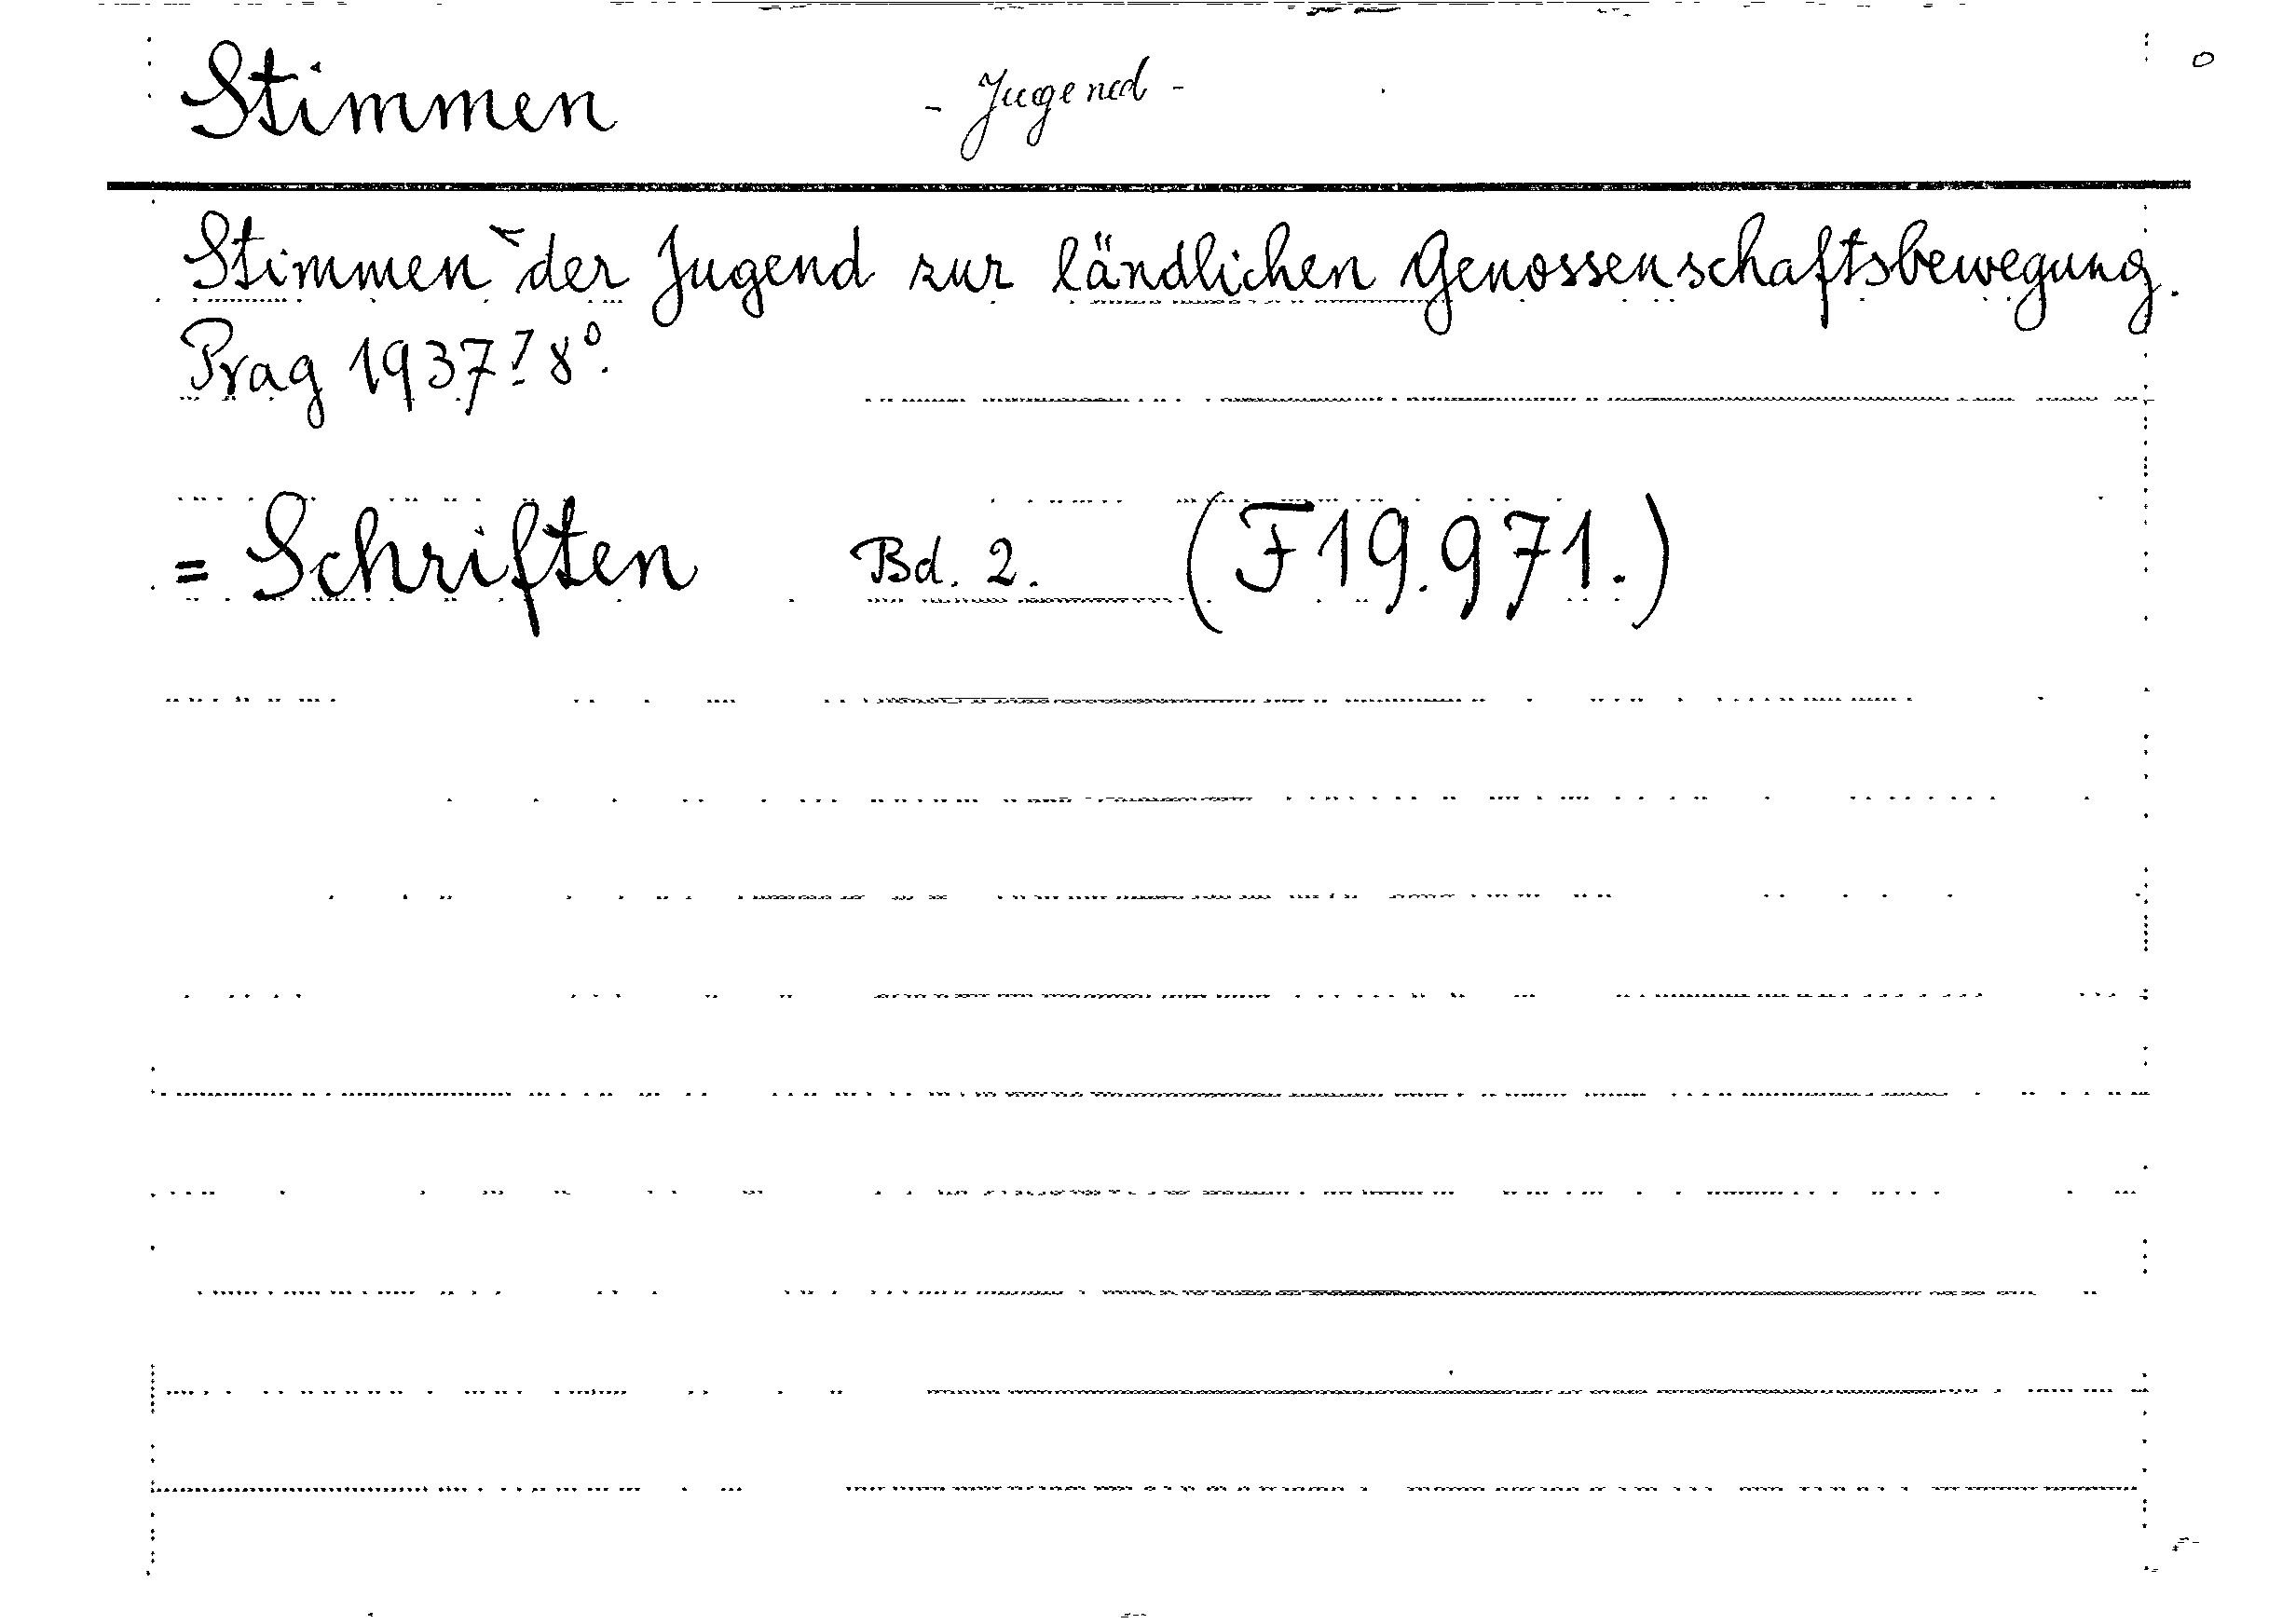 Stimmen - Jugend -
Stimmen der Jugend zur ländlichen Genossenschaftsbewegung.
Prag 1937? 8°.
= Schriften Bd. 2. (F 19.971.)